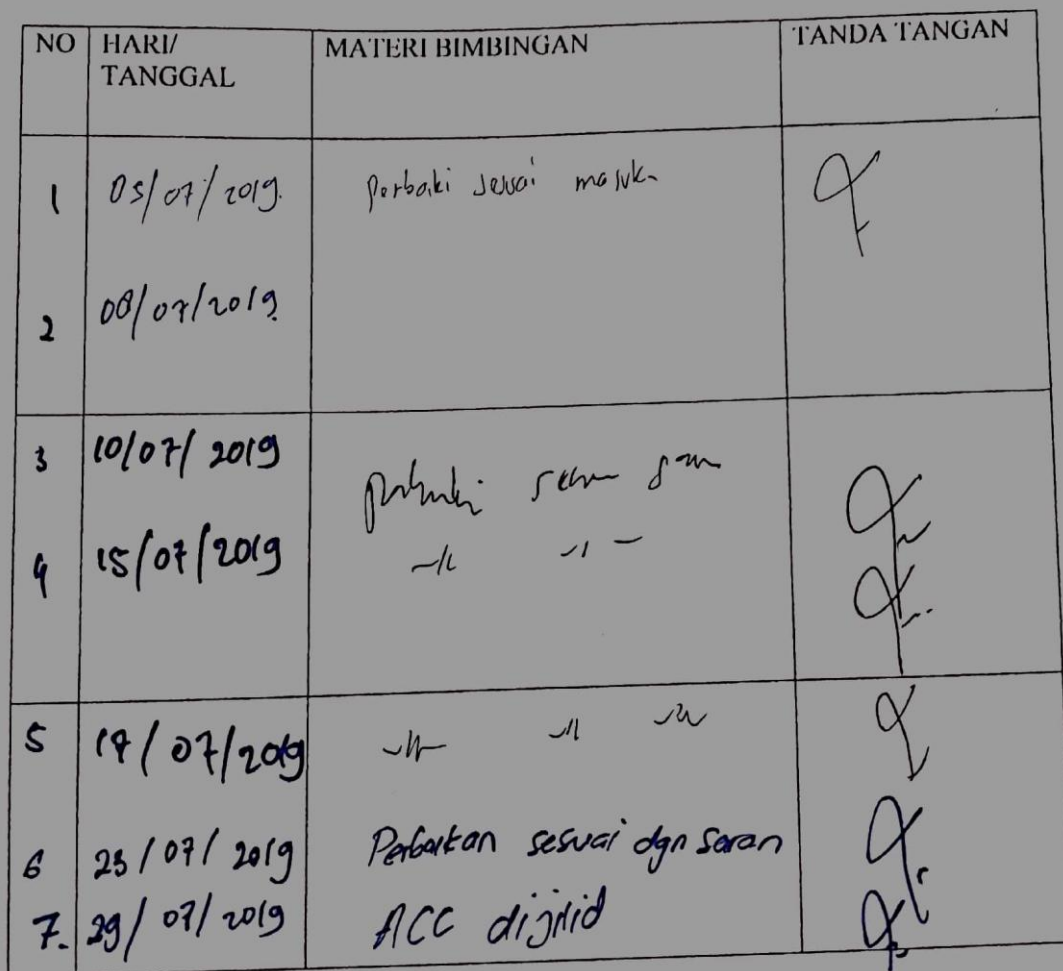 NO HARI/ TANGGAL MATERI BIMBINGAN TANDA TANGAN
1 05/07/2019. Perbaiki sesuai masuk
2 08/07/2019.
3 10/07/2019 perbaiki
4 15/07/2019 -//- -//-
5 17/07/2019 -//- -//- -//-
6 23/07/2019 Perbaikan sesuai dgn saran
7. 29/07/2019 ACC dijilid